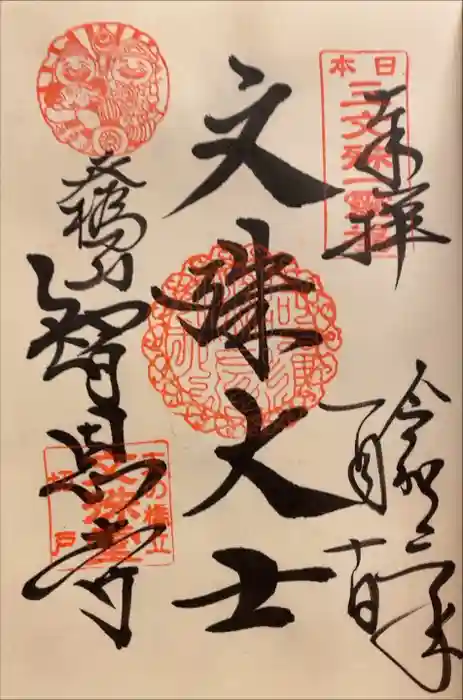 奉拝
日本三文殊
令和二年
一月十一日
文殊大士
天橋立
智恩寺
天の橋立
文殊堂
切戸